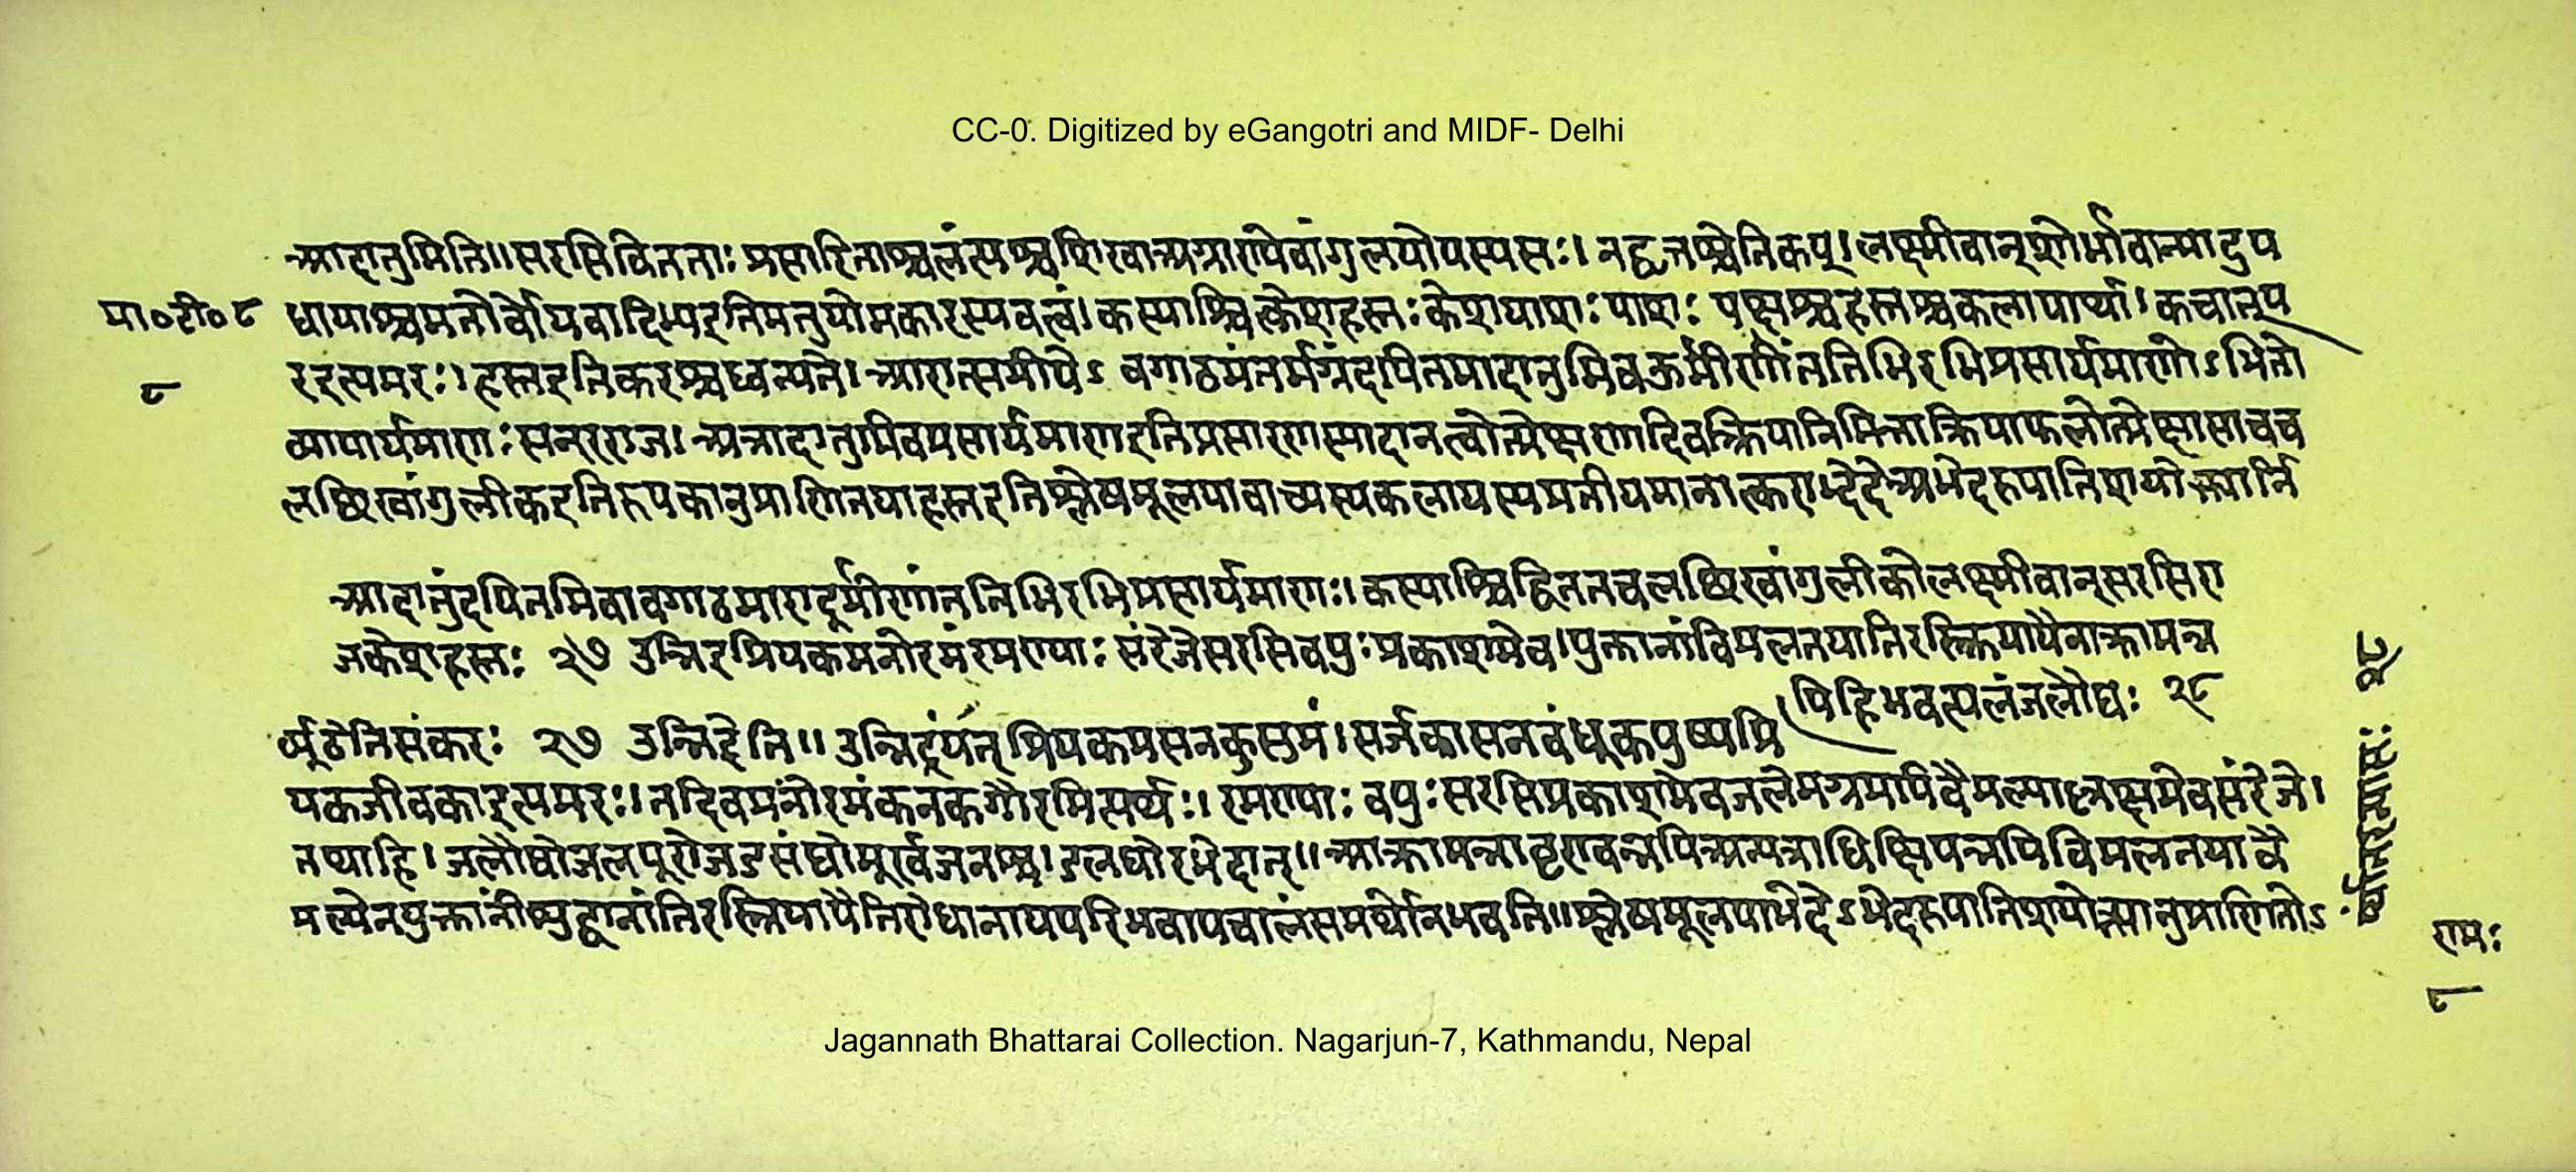 CC-0. Digitized by eGangotri and MIDF- Delhi
आदातुमिति॥ सरसि विततताः प्रसारिताश्चलंत्यश्चशिखाअग्राण्येवांगुलयोयस्यसः। तद्वृत्तश्चेतिकप्। लक्ष्मीवान्शोभावान्मादुप
मा०टी०८ धायाश्चमतोर्वोयवादिभ्यइतिमतुपोमकारस्यवत्वं। कस्याश्चित्केशहस्तःकेशपाशः पाशः पक्षश्चहस्तश्चकलापार्था। कचात्प
८ रइत्यमरः। हस्तइतिकरश्चध्वन्यते। आरात्समीपेऽ वगाढमंतर्मग्नंदयितमादातुमिवऊर्मीणांततिभिरभिप्रसार्यमाणोऽभितो
व्यापार्यमाणः सन्रराज। अत्रादातुमिवप्रसार्यमाणइतिप्रसारणस्यादानत्वोत्प्रेक्षणादिवक्रियानिमित्ताक्रियाफलोत्प्रेक्षासाचच
लच्छिखांगुलीकइतिरूपकानुप्राणितयाहस्तइतिश्लेषमूलयावाच्यस्यकलापस्यप्रतीयमानात्कराद्भेदेअभेदरूपातिशयोक्त्यार्नि
आदातुंदयितमिवावगाढमारादूर्मीणांततिभिरभिप्रसार्यमाणः। कस्याश्चिद्विततचलच्छिखांगुलीकोलक्ष्मीवान्सरसिरा
जकेशहस्तः २७ उन्निद्रप्रियकमनोरमंरमण्याः संरेजेसरसिवपुःप्रकाशमेव। युक्तानांविमलतयातिरस्क्रियायैनाक्रामन्न
पिहिभवत्यलंजलौघः २८
र्व्यूढेतिसंकरः २७ उन्निद्रेति॥ उन्निद्रंयत् प्रियकमसनकुसुमं। सर्जकासनबंधूकपुष्पप्रि
यकजीवकाइत्यमरः। तदिवमनोरमंकनकगौरमित्यर्थः। रमण्याः वपुःसरसिप्रकाशमेवजलेमग्नमपिवैमल्याल्लक्ष्यमेवसंरेजे।
तथाहि। जलौघोजलपूरोजडसंघोमूर्खजनश्च। डलयोरभेदात्॥ आक्रामन्नावृण्वन्नपिअन्यत्राधिक्षिपन्नपिविमलतयावै
मल्येनयुक्तानांविशुद्धानांतिरस्क्रियायैतिरोधानायपरिभवायचालंसमर्थोनभवति॥ श्लेषमूलयाभेदेऽभेदरूपातिशयोक्त्यानुप्राणितोऽ
२८
रामः
८
Jagannath Bhattarai Collection. Nagarjun-7, Kathmandu, Nepal